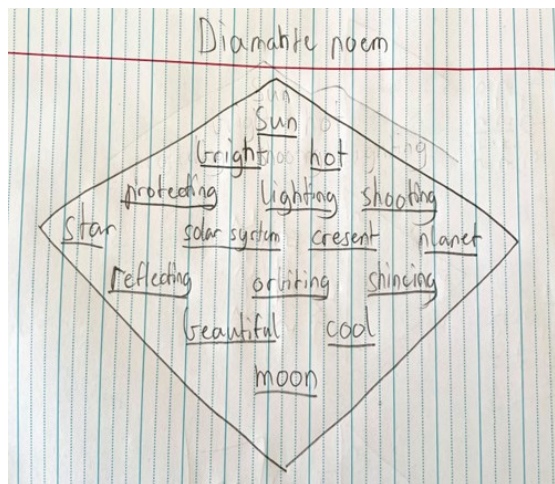 Diamante poem
Sun
bright hot
protecting lighting shooting
star solar system cresent planet
reflecting orbiting shincing
beautiful cool
moon